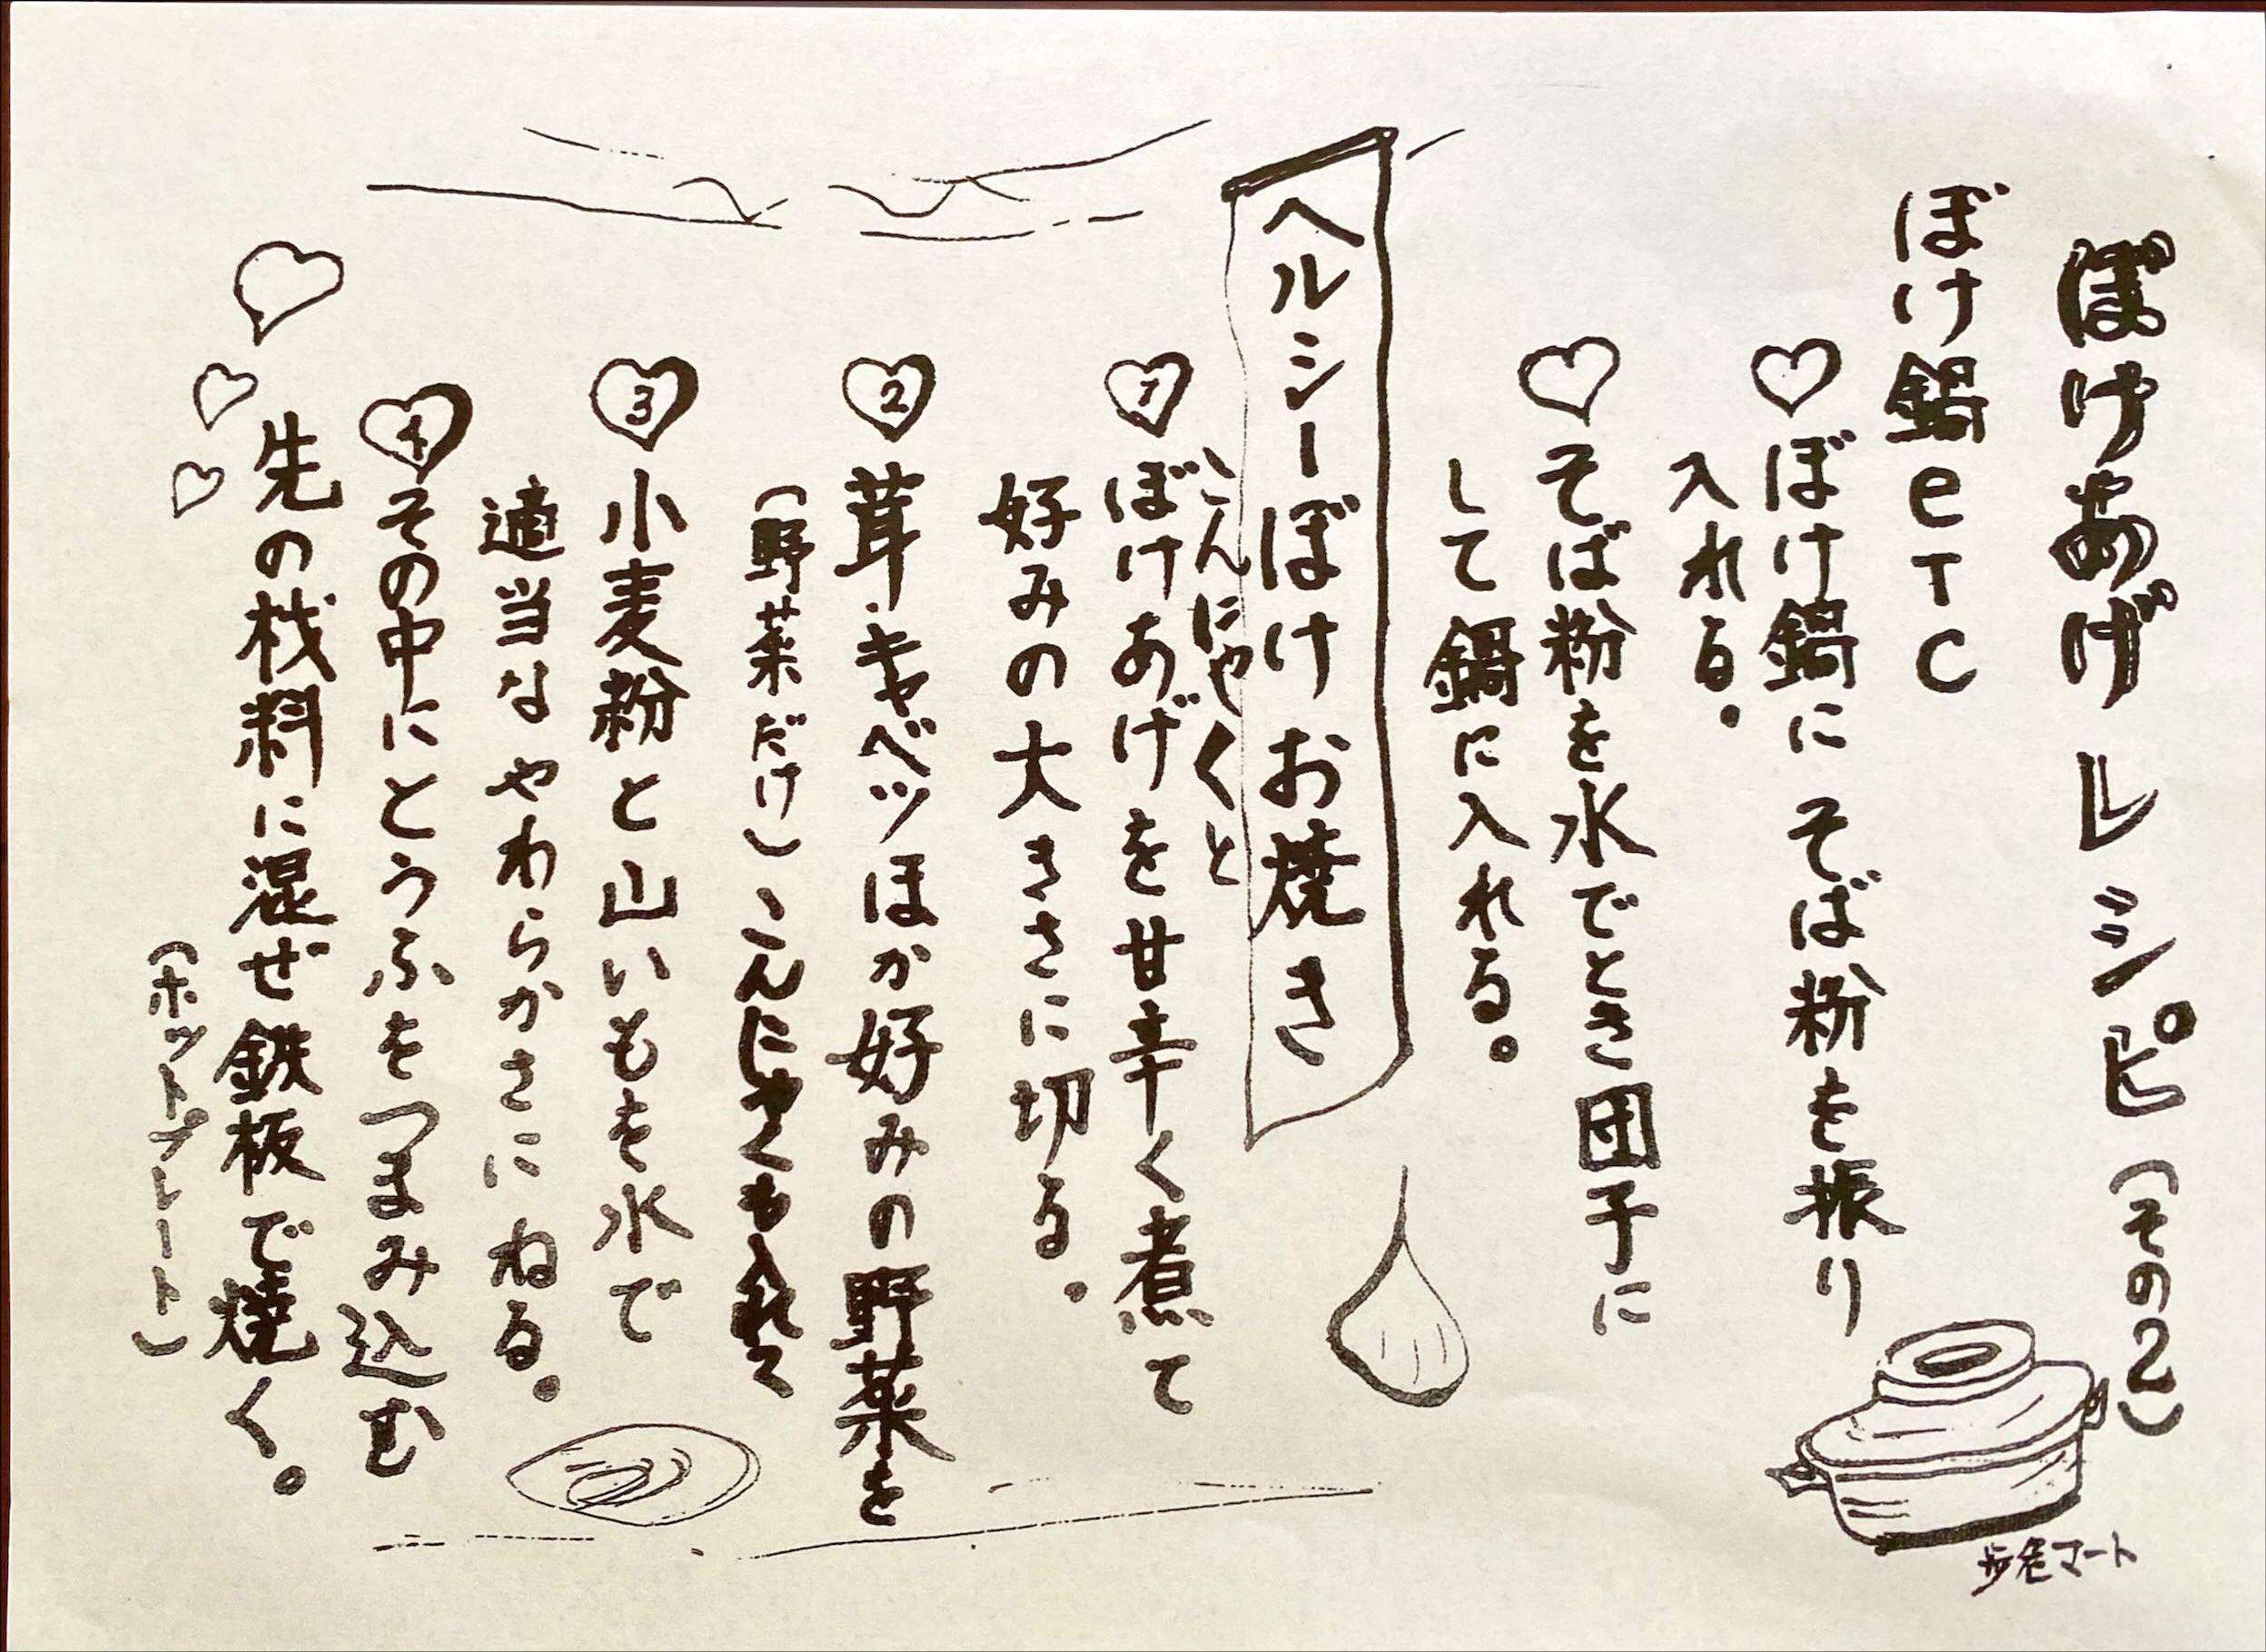 ぼけあげレシピ(その2)
ぼけ鍋eTC
♡ぼけ鍋にそば粉を振り
入れる.
♡そば粉を水でとき団子に
して鍋に入れる。
ヘルシーぼけお焼き
こんにゃくと
①ぼけあげを甘辛く煮て
好みの大きさに切る.
②茸・キャベツほか好みの野菜を
(野菜だけ)、こんにゃくも入れて
③小麦粉と山いもを水で
適当なやわらかさにねる.
④その中にとうふをつまみ込む
先の材料に混ぜ鉄板で焼く。
(ホットプレート)
マート